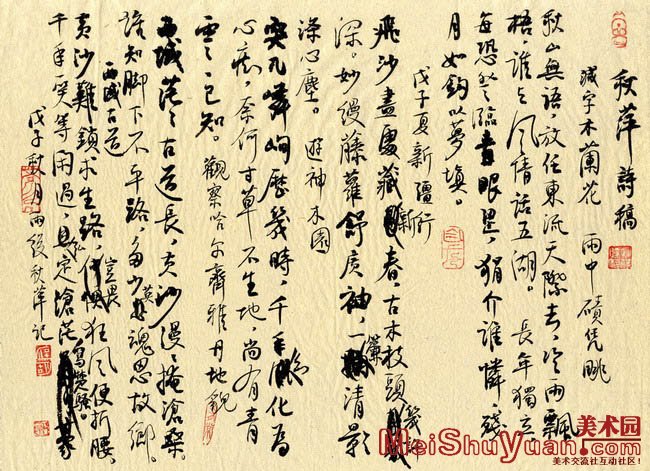 秋萍詩稿
减字木蘭花 雨中磧凭眺
秋山無語,放任東流天際去,冷雨飄
梧,誰與風情話五湖。長年獨立
每恐登臨青眼黑,狷介誰憐,殘
月如鈎以夢填。
戊子夏新疆行
飛沙盡處藏新春,古木枝頭幾許
深。妙縵藤蘿舒广袖,一簾清影
滌心塵。 遊神木園
突兀嶙峋歷幾時,千年化為
心痴,奈何寸草不生地,尚有青
雲已知。觀察哈尔齊雅丹地貌
西域茫茫古道長,黄沙漫漫掩滄桑。
誰知脚下不平路,多少英魂思故鄉。
西域古道
黄沙難鎖求生路,豈畏狂風便折腰
千年一笑等閑過,定滄茫寫楚騷
戊子秋月雨後秋萍記
美术园
MeiShuYuan.com
美术交流社互动社区!